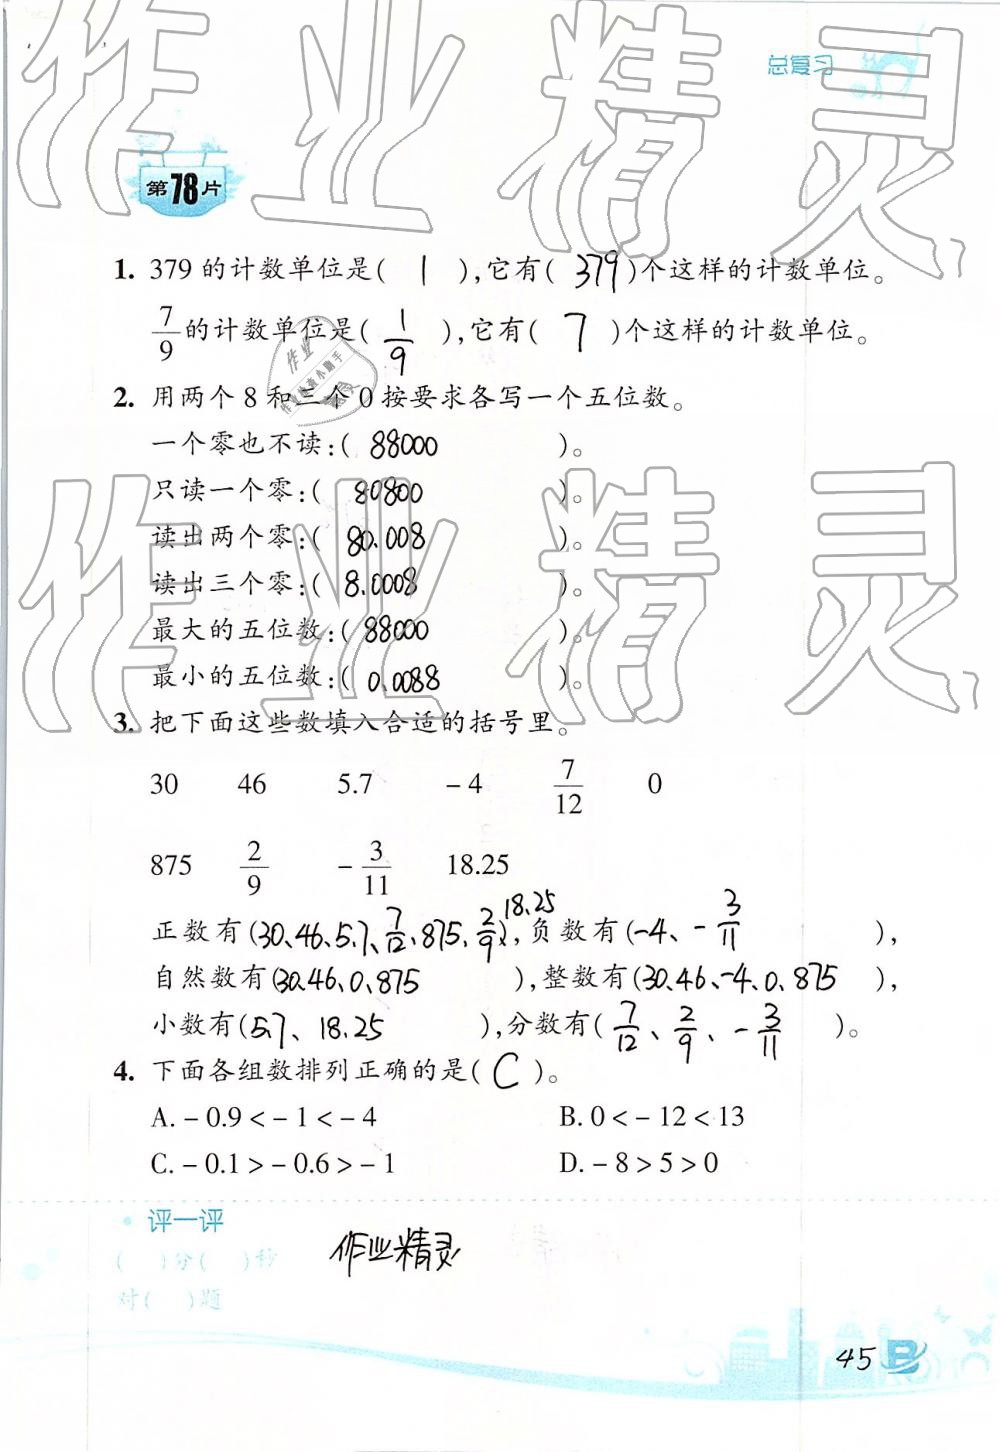 总复习
作业精灵
第78片
1. 379的计数单位是( 1 ),它有( 379 )个这样的计数单位。
7/9的计数单位是( 1/9 ),它有( 7 )个这样的计数单位。
2. 用两个8和三个0按要求各写一个五位数。
一个零也不读:( 88000 )。
只读一个零:( 80800 )。
读出两个零:( 80.008 )。
读出三个零:( 8.0008 )。
最大的五位数:( 88000 )。
最小的五位数:( 0.0088 )。
作业精灵
3. 把下面这些数填入合适的括号里。
30 46 5.7 -4 7/12 0
875 2/9 -3/11 18.25
正数有(30、46、5.7、7/12、875、2/9、18.25),负数有(-4、-3/11 ),
自然数有(30、46、0、875 ),整数有(30、46、-4、0、875 ),
小数有(5.7、18.25 ),分数有( 7/12、2/9、-3/11 )。
4. 下面各组数排列正确的是( C )。
A. -0.9<-1<-4 B. 0<-12<13
C. -0.1>-0.6>-1 D. -8>5>0
评一评
( )分( )秒
对( )题
作业精灵
45 B